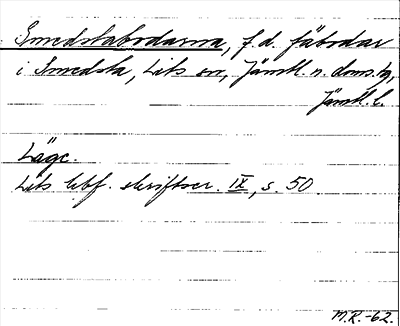 Smedstabodarna, f.d. fäbodar
i Smedsta, Lits sn, Jämtl. n. doms.tg,
Jämtl. l.
Läge.
Lits hbf. skriftser. IX, s. 50
M.R.-62.